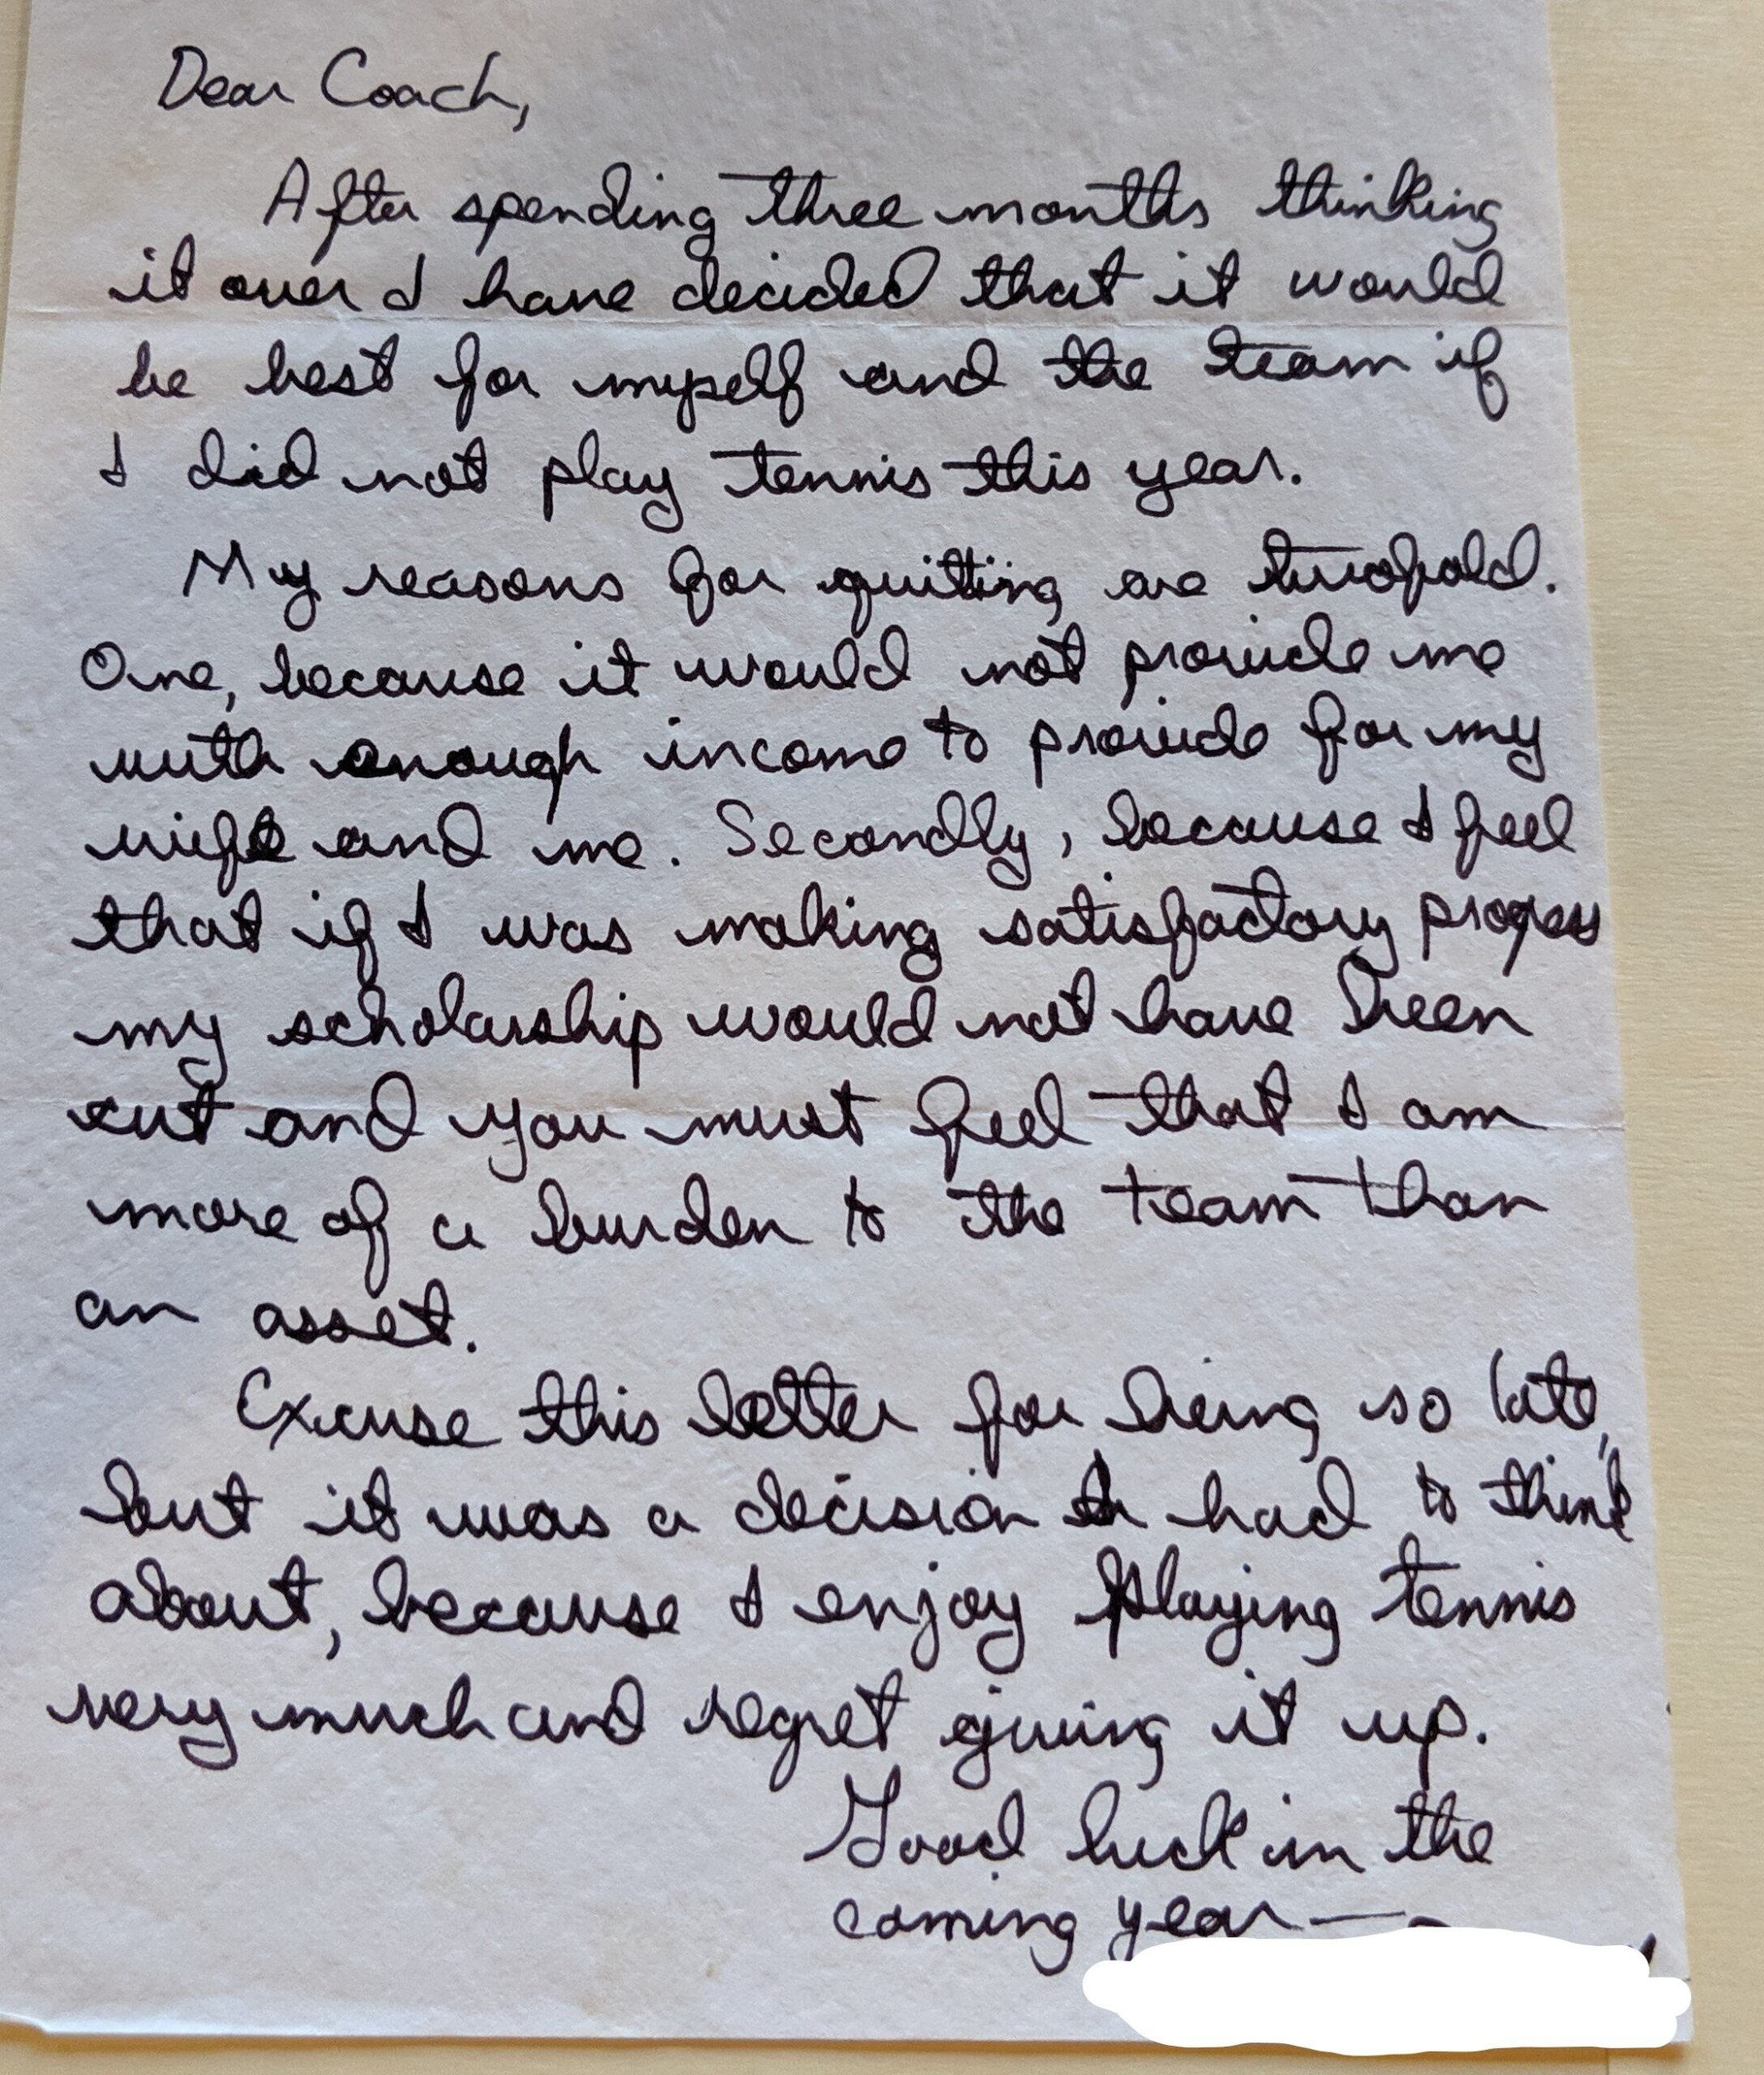 Dear Coach,
After spending three months thinking
it over I have decided that it would
be best for myself and the team if
I did not play tennis this year.
My reasons for quitting are twofold.
One, because it would not provide me
with enough income to provide for my
wife and me. Secondly, because I feel
that if I was making satisfactory progress
my scholarship would not have been
cut and you must feel that I am
more of a burden to the team than
an asset.
Excuse this letter for being so late,
but it was a decision I had to think
about, because I enjoy playing tennis
very much and regret giving it up.
Good luck in the
coming year —